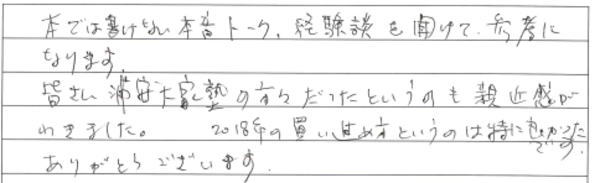 本では書けない本音トーク、経験談も聞けて、参考に
なります。
皆さん浦安大家塾の方々だったというのも親近感が
わきました。 2018年の買い進め方というのは特に良かった
です。
ありがとうございます。